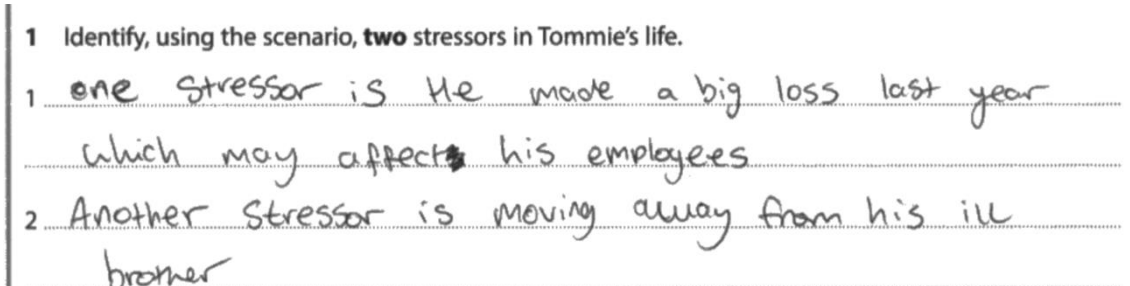 1 Identify, using the scenario, two stressors in Tommie's life.
1 one stressor is He made a big loss last year
which may affect his employees
2 Another stressor is moving away from his ill
brother